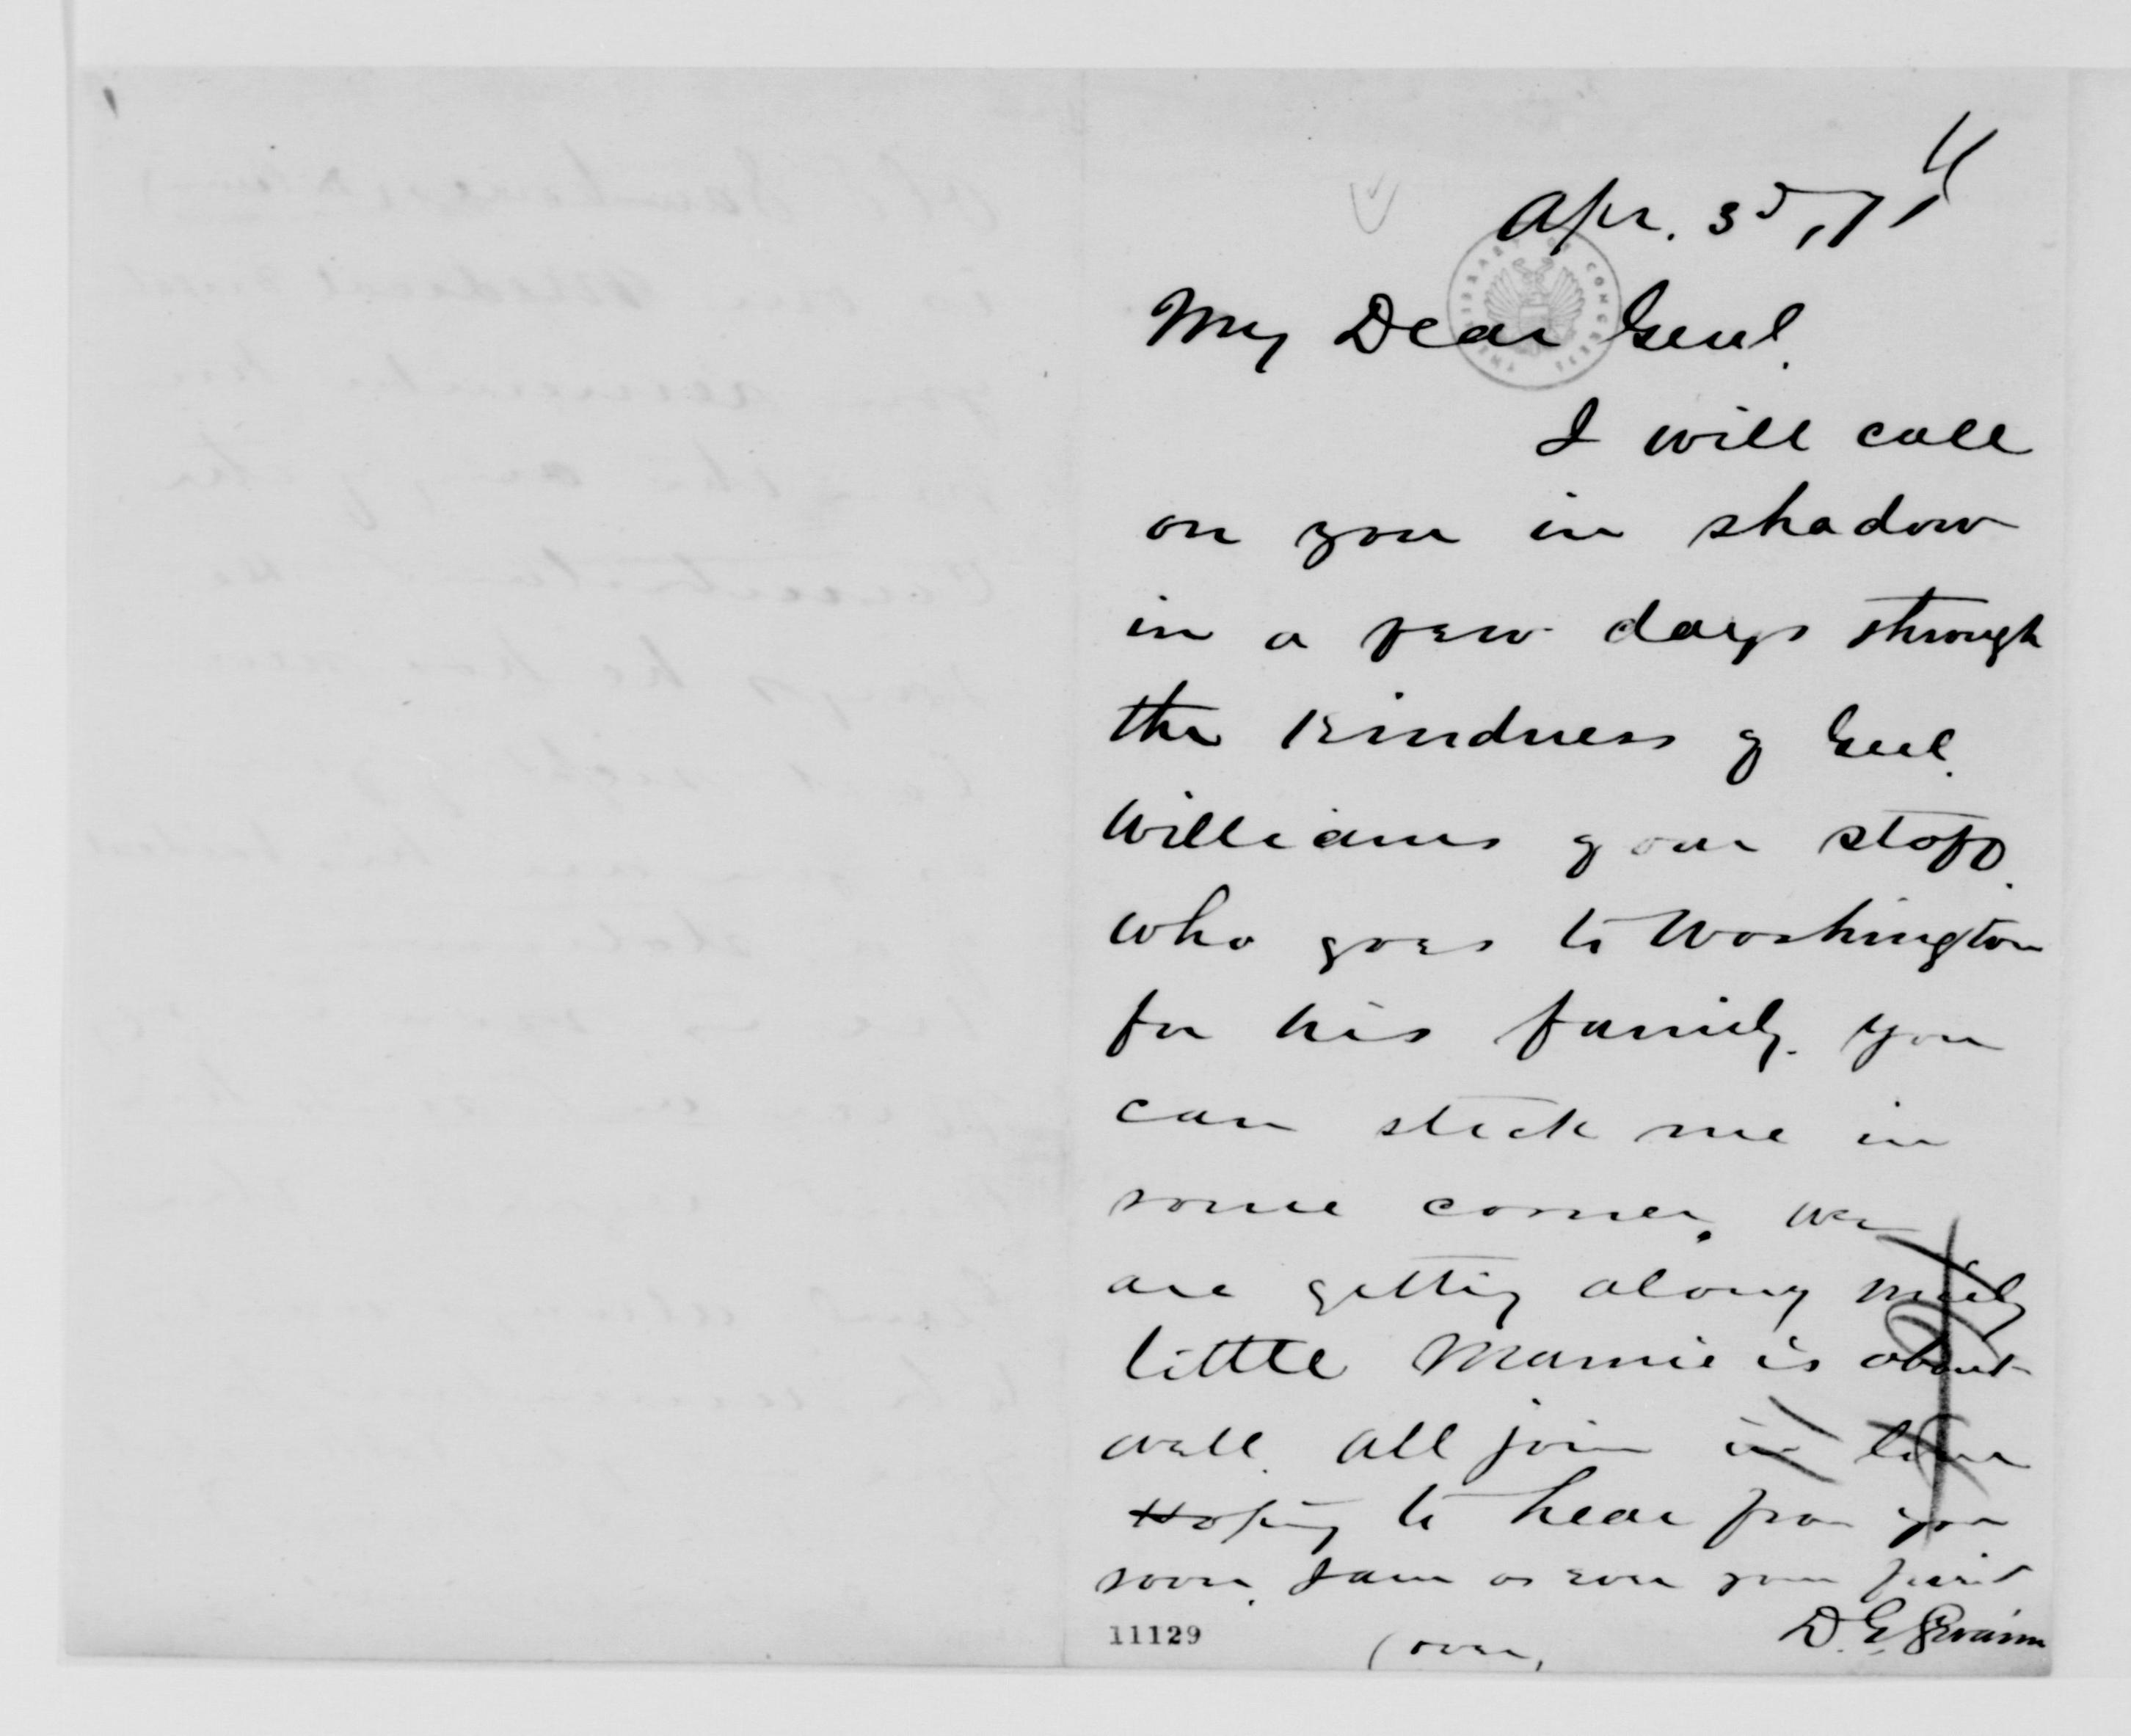 Apr. 3d, 71
My Dear Genl.
I will call
on you in shadow
in a few days through
the Kindness of Genl.
Williams of our staff.
who goes to Washington
for his family. You
can stick me in
some corner. We
are getting along nicely
little Mamie is about
well. All join in love
Hoping to hear from you
soon. I am as ever your friend
D. G. Swaim
(over,
11129
THE LIBRARY OF CONGRESS